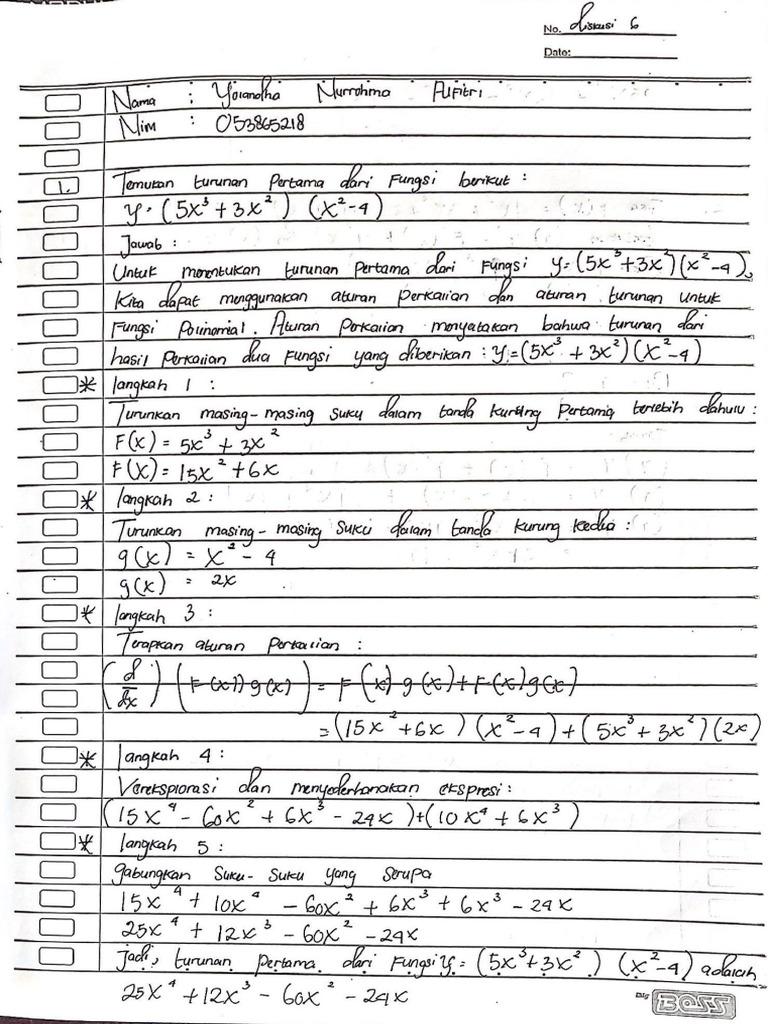 No. diskusi 6
Date:
Nama : Yolandha Nurrohma Alfitri
Nim : 053865218
1. Temukan turunan Pertama dari Fungsi berikut :
y = (5x³ + 3x²) (x²-4)
Jawab :
Untuk menentukan turunan Pertama dari Fungsi y=(5x³+3x²)(x²-4),
Kita dapat menggunakan aturan perkalian dan aturan turunan untuk
Fungsi Polinomial. Aturan Perkalian menyatakan bahwa turunan dari
hasil Perkalian dua Fungsi yang diberikan : y=(5x³ + 3x²)(x²-4)
* langkah 1 :
Turunkan masing-masing suku dalam tanda kurung Pertama terlebih dahulu :
F(x) = 5x³ + 3x²
F(x) = 15x² + 6x
* langkah 2 :
Turunkan masing-masing suku dalam tanda kurung kedua :
g(x) = x² - 4
g(x) = 2x
* langkah 3 :
Terapkan aturan Perkalian :
(d/dx) (F(x)) g(x)) = F(x) g(x) + F(x) g(x)
= (15x² + 6x) (x²-4) + (5x³ + 3x²) (2x)
* langkah 4 :
dan menyederhanakan ekspresi :
(15x⁴ - 60x² + 6x³ - 24x) + (10x⁴ + 6x³)
* langkah 5 :
gabungkan Suku-Suku yang Serupa
15x⁴ + 10x⁴ - 60x² + 6x³ + 6x³ - 24x
25x⁴ + 12x³ - 60x² - 24x
Jadi, turunan Pertama dari Fungsi y = (5x³+3x²) (x²-4) adalah
25x⁴ + 12x³ - 60x² - 24x
Big BOSS